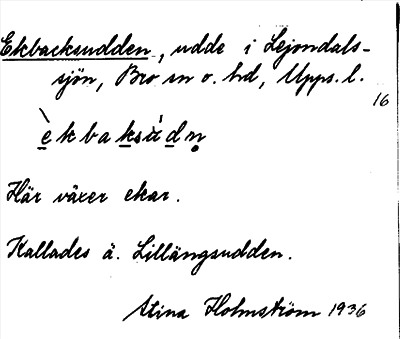 Ekbacksudden, udde i Lejondals-
sjön, Bro sn o. hd, Upps. l.
16
è k b a k s ú d n̥
Här växer ekar.
Kallades ä. Lillängsudden.
Stina Holmström 1936